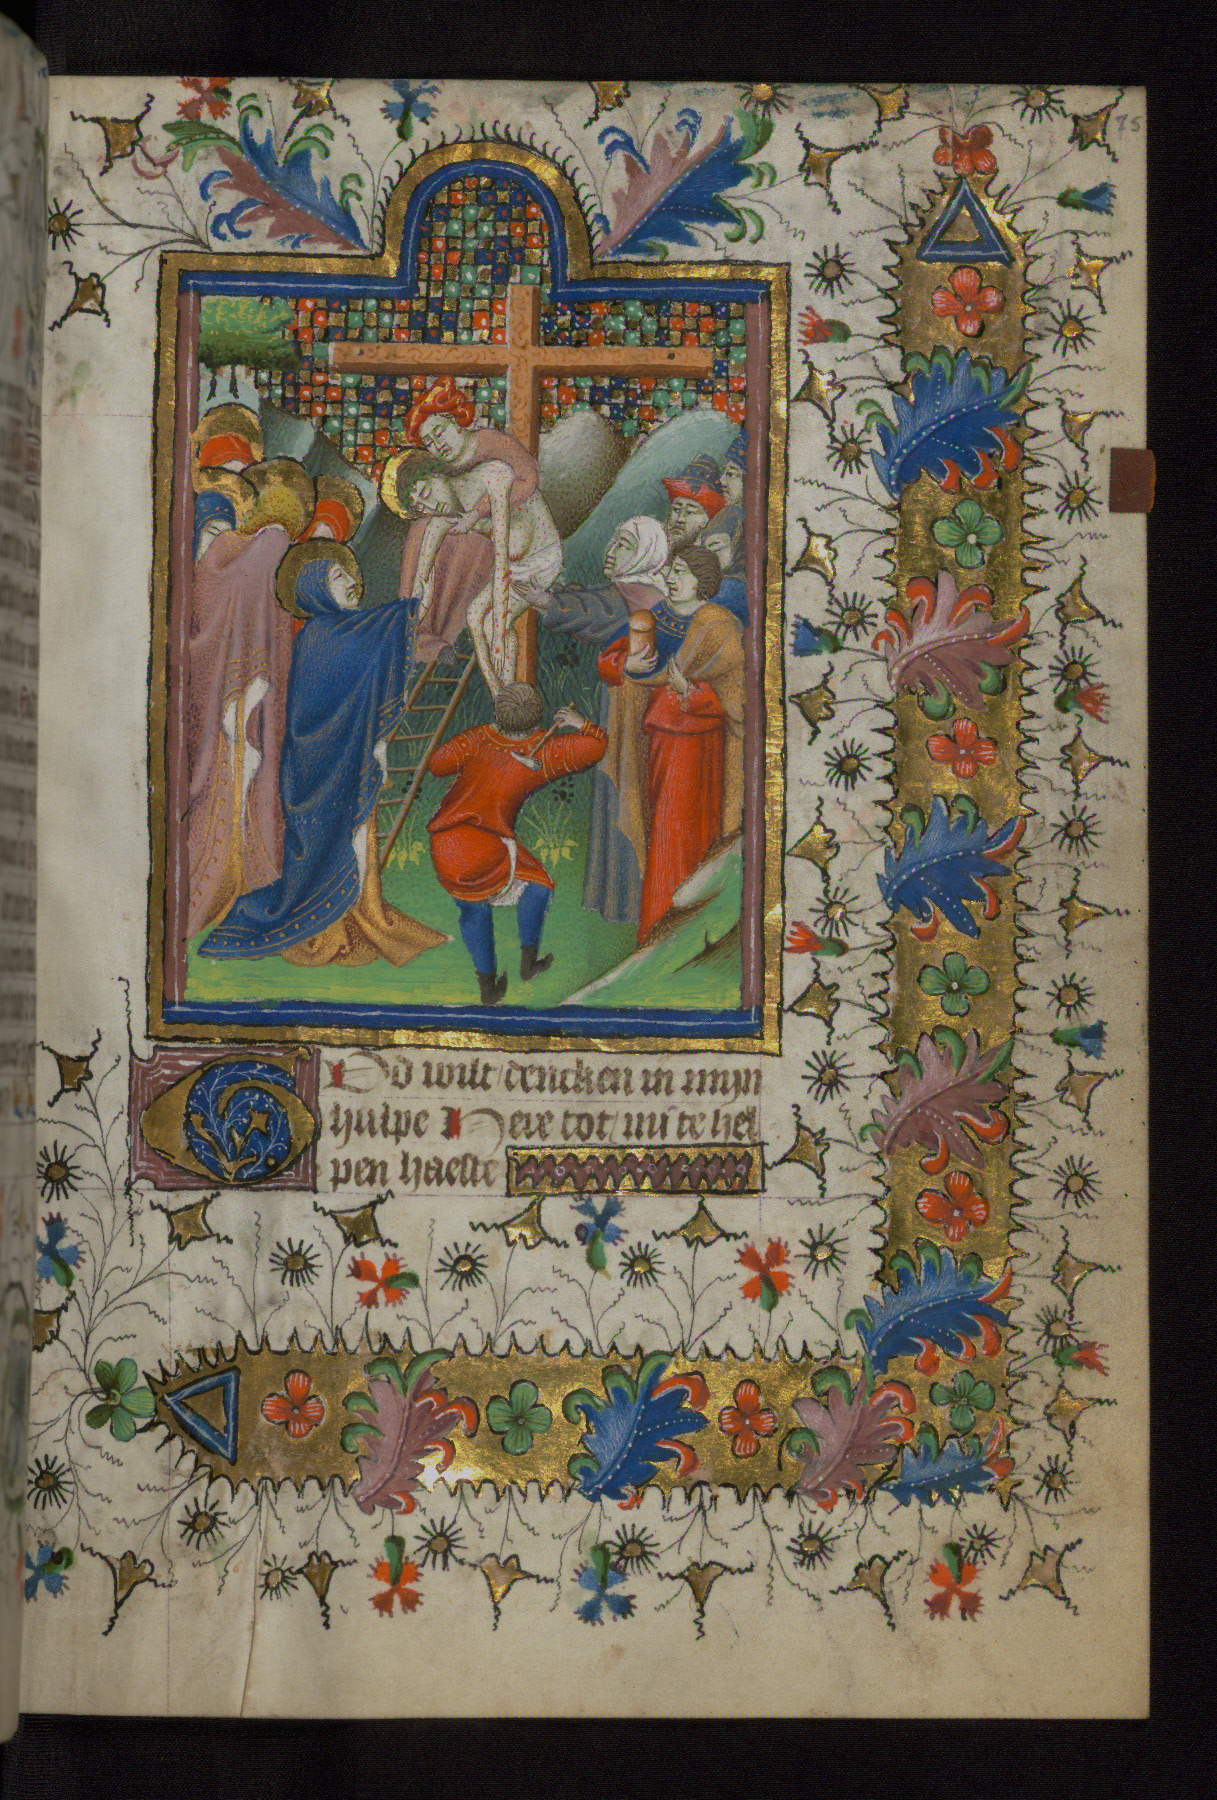 75
God wilt dencken in mijn
hulpe Here tot mi te hel
pen haeste